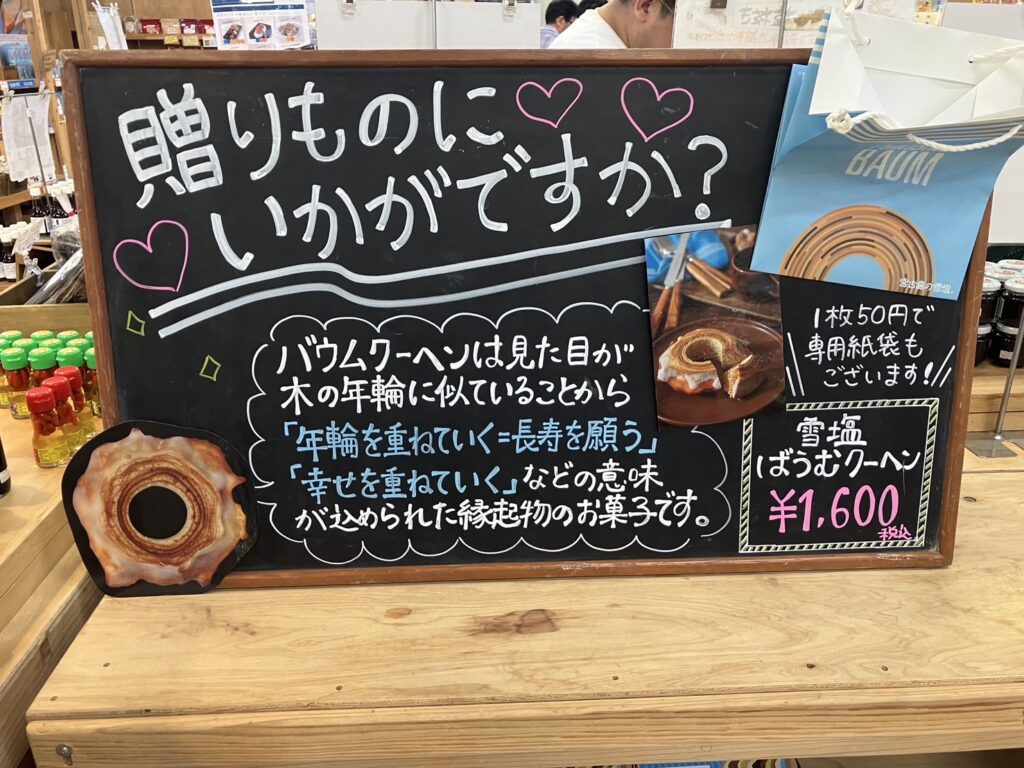 贈りものに
いかがですか?
バウムクーヘンは見た目が
木の年輪に似ていることから
「年輪を重ねていく=長寿を願う」
「幸せを重ねていく」などの意味
が込められた縁起物のお菓子です。
BAUM
宮古島の雪塩
1枚50円で
専用紙袋も
ございます!
雪塩
ばうむクーヘン
¥1,600
税込